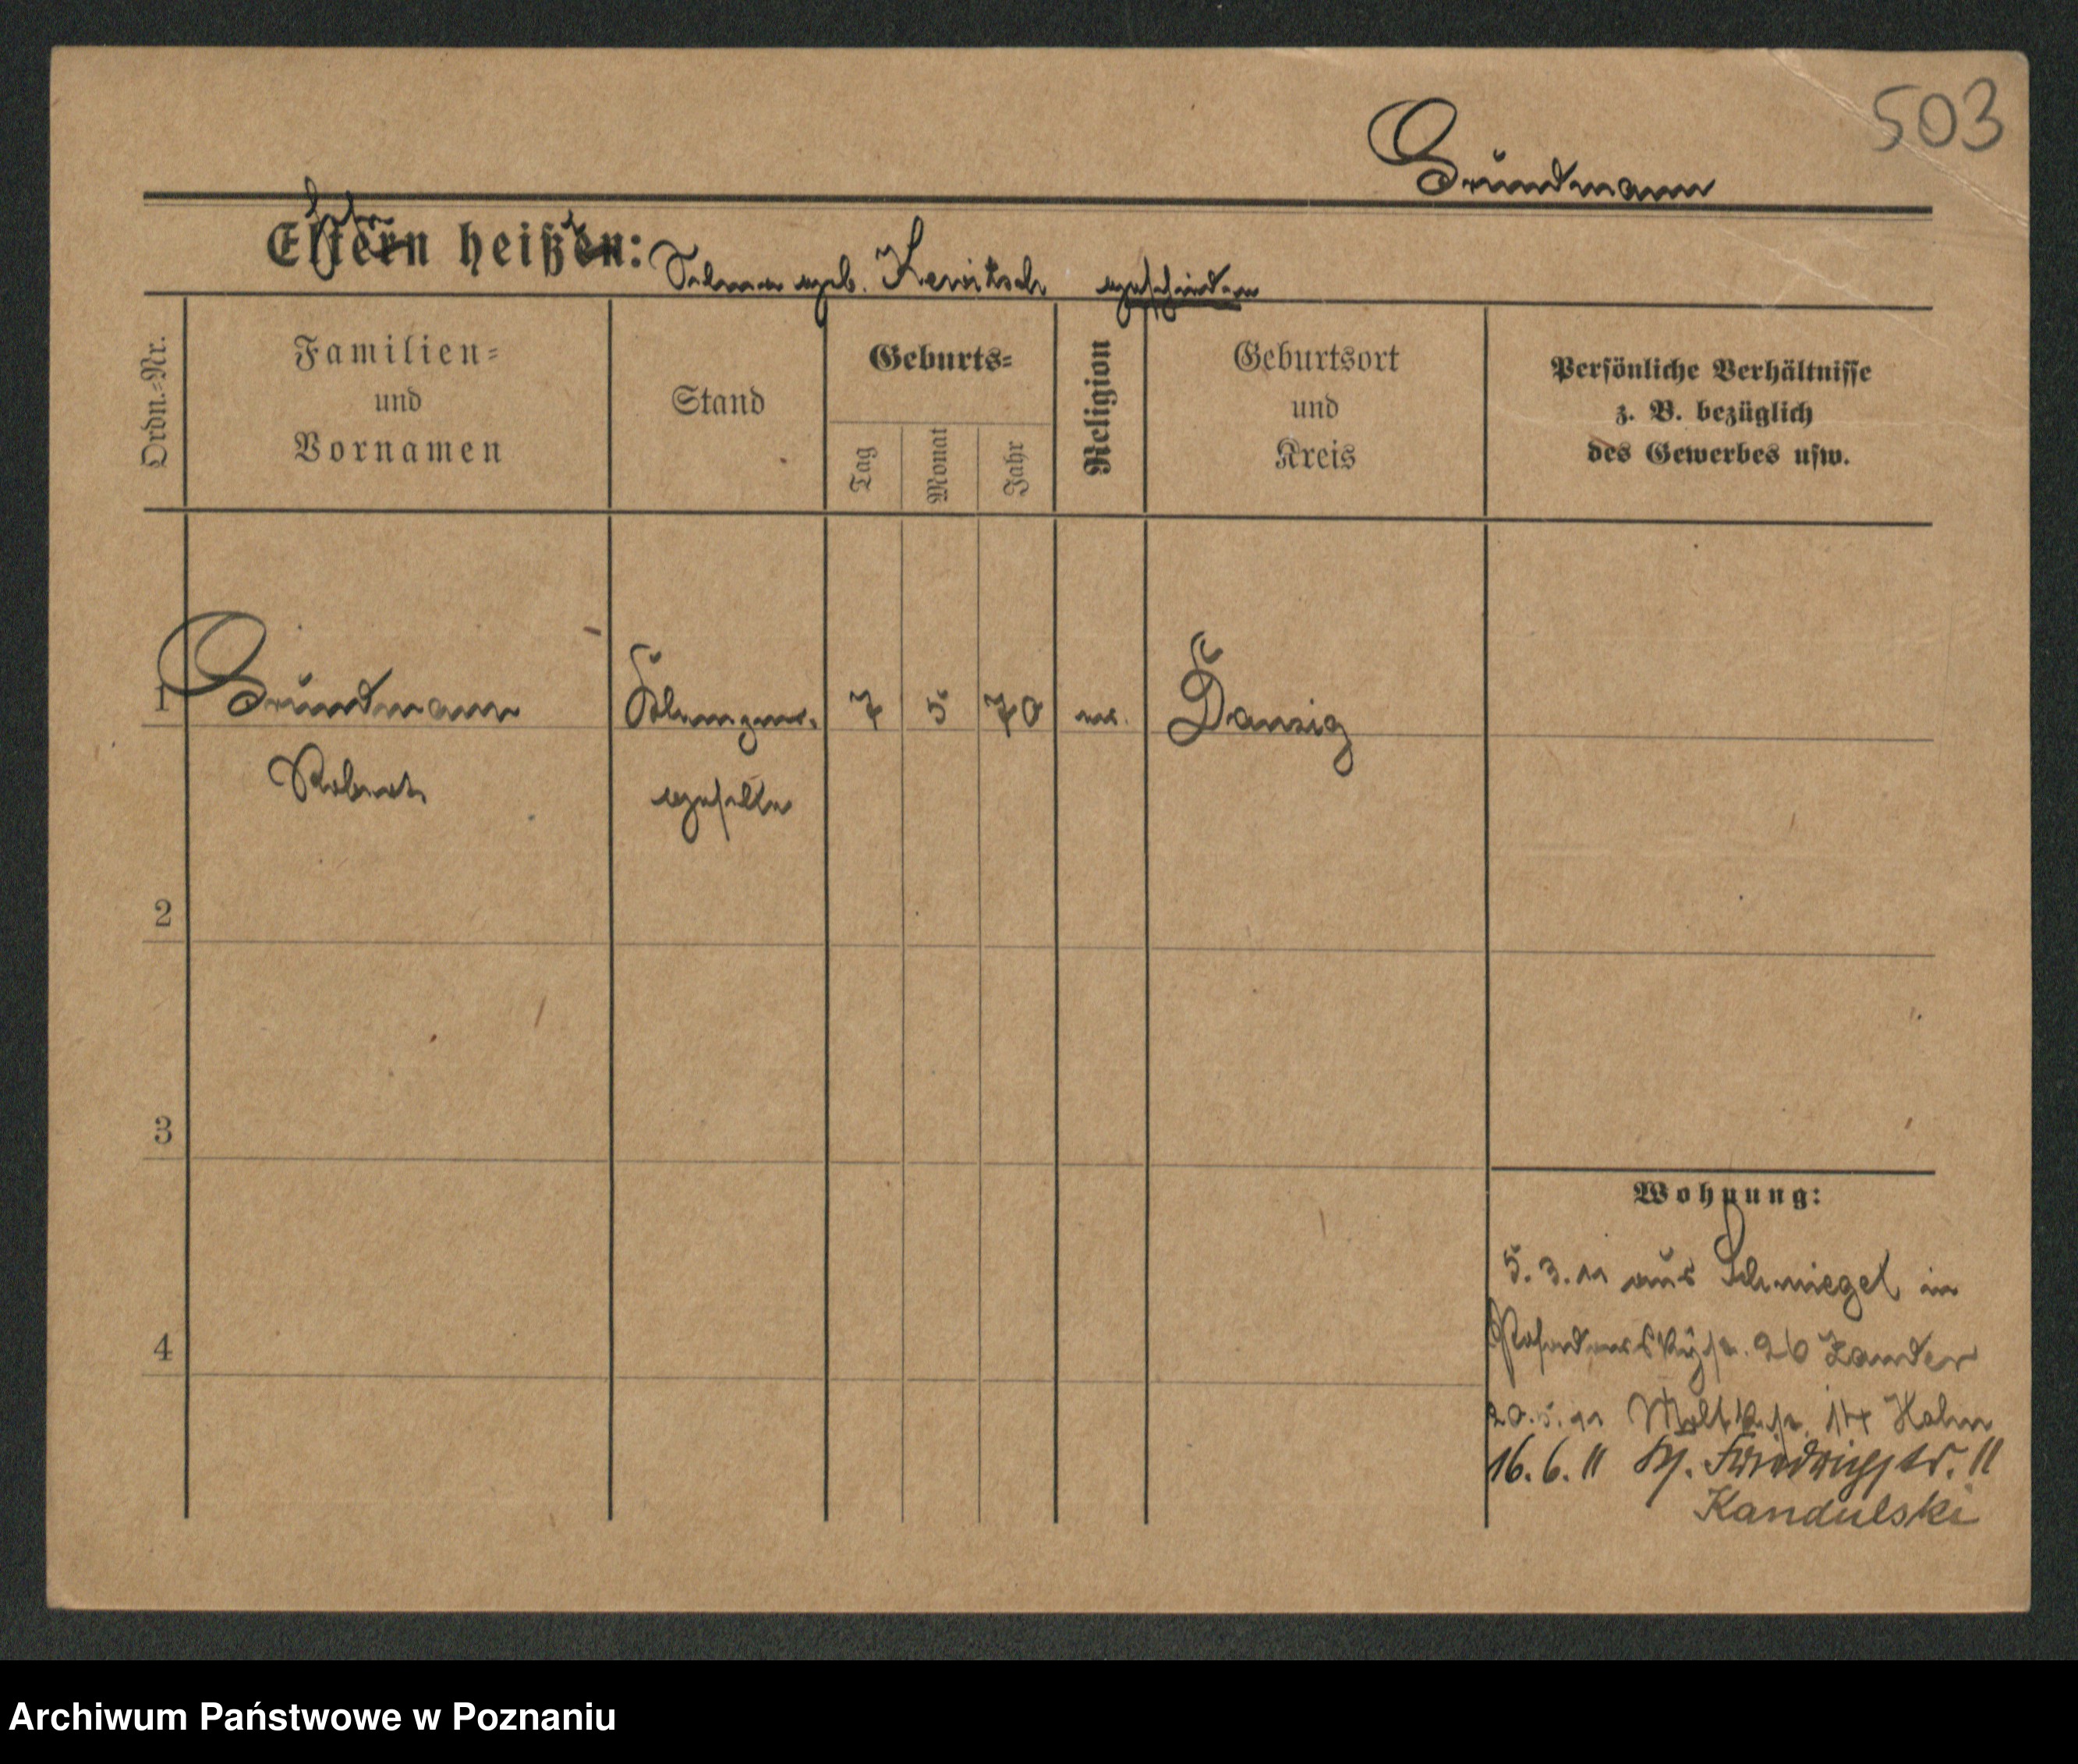 503
Grundmann
Eltern heißen:
Selma geb. Kewitsch geschieden
Ordn.-Nr.
Familien-
und
Vornamen
Stand
Geburts-
Tag
Monat
Jahr
Religion
Geburtsort
und
Kreis
Persönliche Verhältnisse
z. B. bezüglich
des Gewerbes usw.
1
Grundmann
Klempner
7
5
70
ev.
Danzig
Robert
geselle
2
3
4
Wohnung:
5.3.11 aus Schmiegel in
26 Zander
20.5.11 Moltkestr. 14 Hahn
16.6.11 Friedrichstr. 11
Kandulski
Archiwum Państwowe w Poznaniu